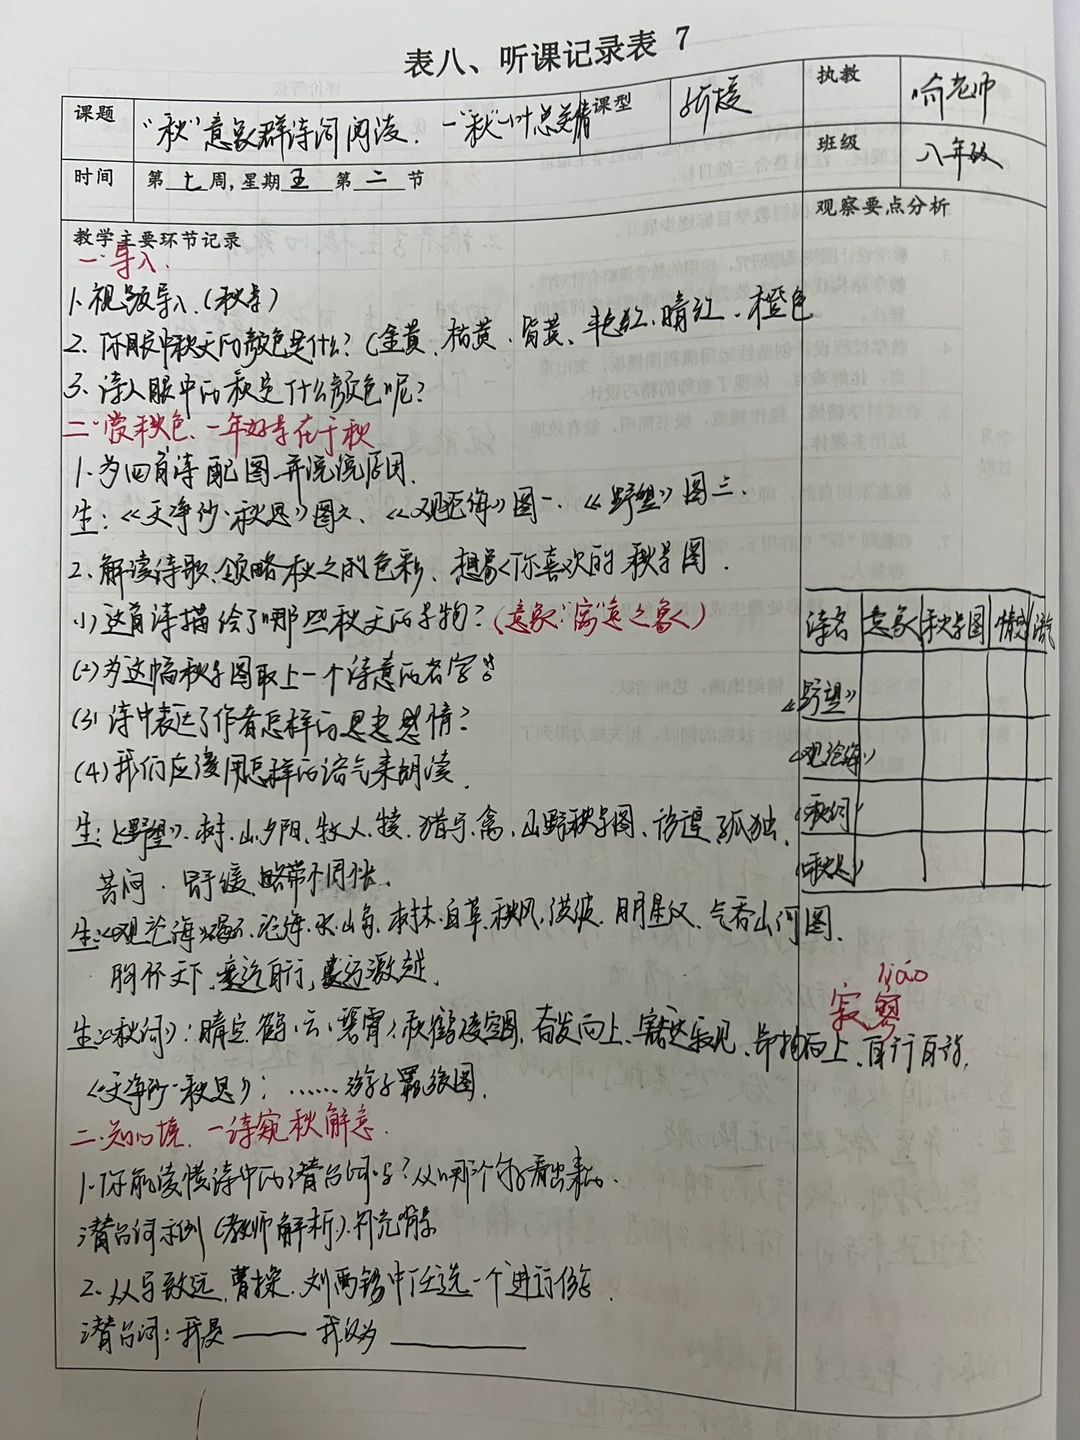 表八、听课记录表 7
课题 "秋"意象群诗词阅读. 一"秋"一叶总关情 课型 新授 执教 俞老师
班级 八年级
时间 第 七 周,星期 五 第 二 节
教学主要环节记录 观察要点分析
一、导入.
1.视频导入.(秋景)
2.你眼中秋天的颜色是什么?(金黄、枯黄、 橙色
3.诗人眼中的秋是什么颜色呢?
二、赏秋色、一年好景在于秋
1.为四首诗配图.并说说原因.
生:《天净沙·秋思》图 、《观沧海》图一、《野望》图三.
2.解读诗歌、领略秋之 色彩、想象你喜欢的秋景图.
(1)这首诗描绘了哪些秋天的景物?(意象:寓"意之象)
(2)为这幅秋景图取上一个诗意的名字
(3)诗中表达了作者怎样的思想感情?
(4)我们应该用怎样的语气来朗读.
诗名 意象 秋景图 情感 语气
《野望》
《观沧海》
《秋词》
《秋思》
生:《野望》.树.山.夕阳、牧人.犊.猎马.禽、山野秋景图、彷徨 孤独、
苦闷.舒缓、略带不同怅.
生:《观沧海》碣石、沧海.水.山岛.树木.百草.秋风.洪波.日月星汉.气吞山河图.
胸怀天下、 豪迈激越.
寂寥 liáo
生:《秋词》:晴空.鹤.云.碧霄.秋鹤凌空图.奋发向上、豁达乐观、昂扬向上、
《天净沙·秋思》:……游子羁旅图.
三.知心境、一诗窥秋解意.
1.你能读懂诗中的潜台词吗?从哪个句子看出来的.
潜台词示例(教师解析).补充背景
2.从马致远.曹操.刘禹锡中任选一个进行仿写.
潜台词:我是 —— 我认为 ————